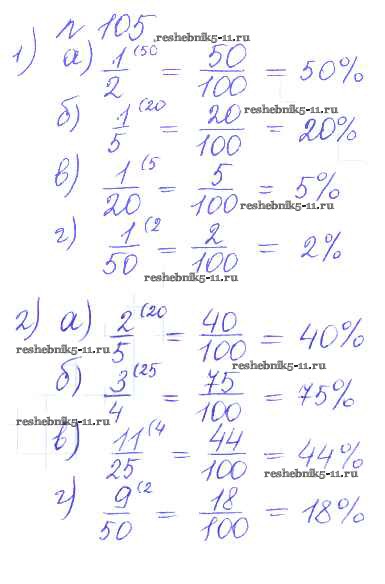 № 105
reshebnik5-11.ru
1) а) 1/2 (50 = 50/100 = 50%
reshebnik5-11.ru
б) 1/5 (20 = 20/100 = 20%
reshebnik5-11.ru
в) 1/20 (5 = 5/100 = 5%
reshebnik5-11.ru
г) 1/50 (2 = 2/100 = 2%
reshebnik5-11.ru
2) а) 2/5 (20 = 40/100 = 40%
reshebnik5-11.ru
reshebnik5-11.ru
б) 3/4 (25 = 75/100 = 75%
reshebnik5-11.ru
в) 11/25 (4 = 44/100 = 44%
reshebnik5-11.ru
г) 9/50 (2 = 18/100 = 18%
reshebnik5-11.ru